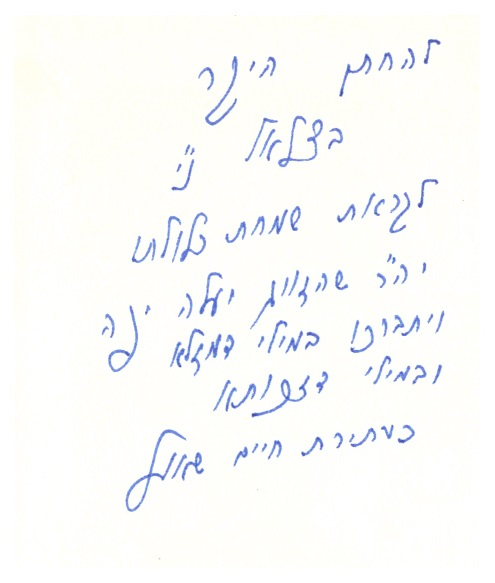 להחתן היקר
בצלאל נ"י
לקראת שמחת כלולתו
יה"ר שהזווג יעלה יפה
ויתברכו במילי דמזלא
ובמילי דזכותא
כעתירת חיים שאול